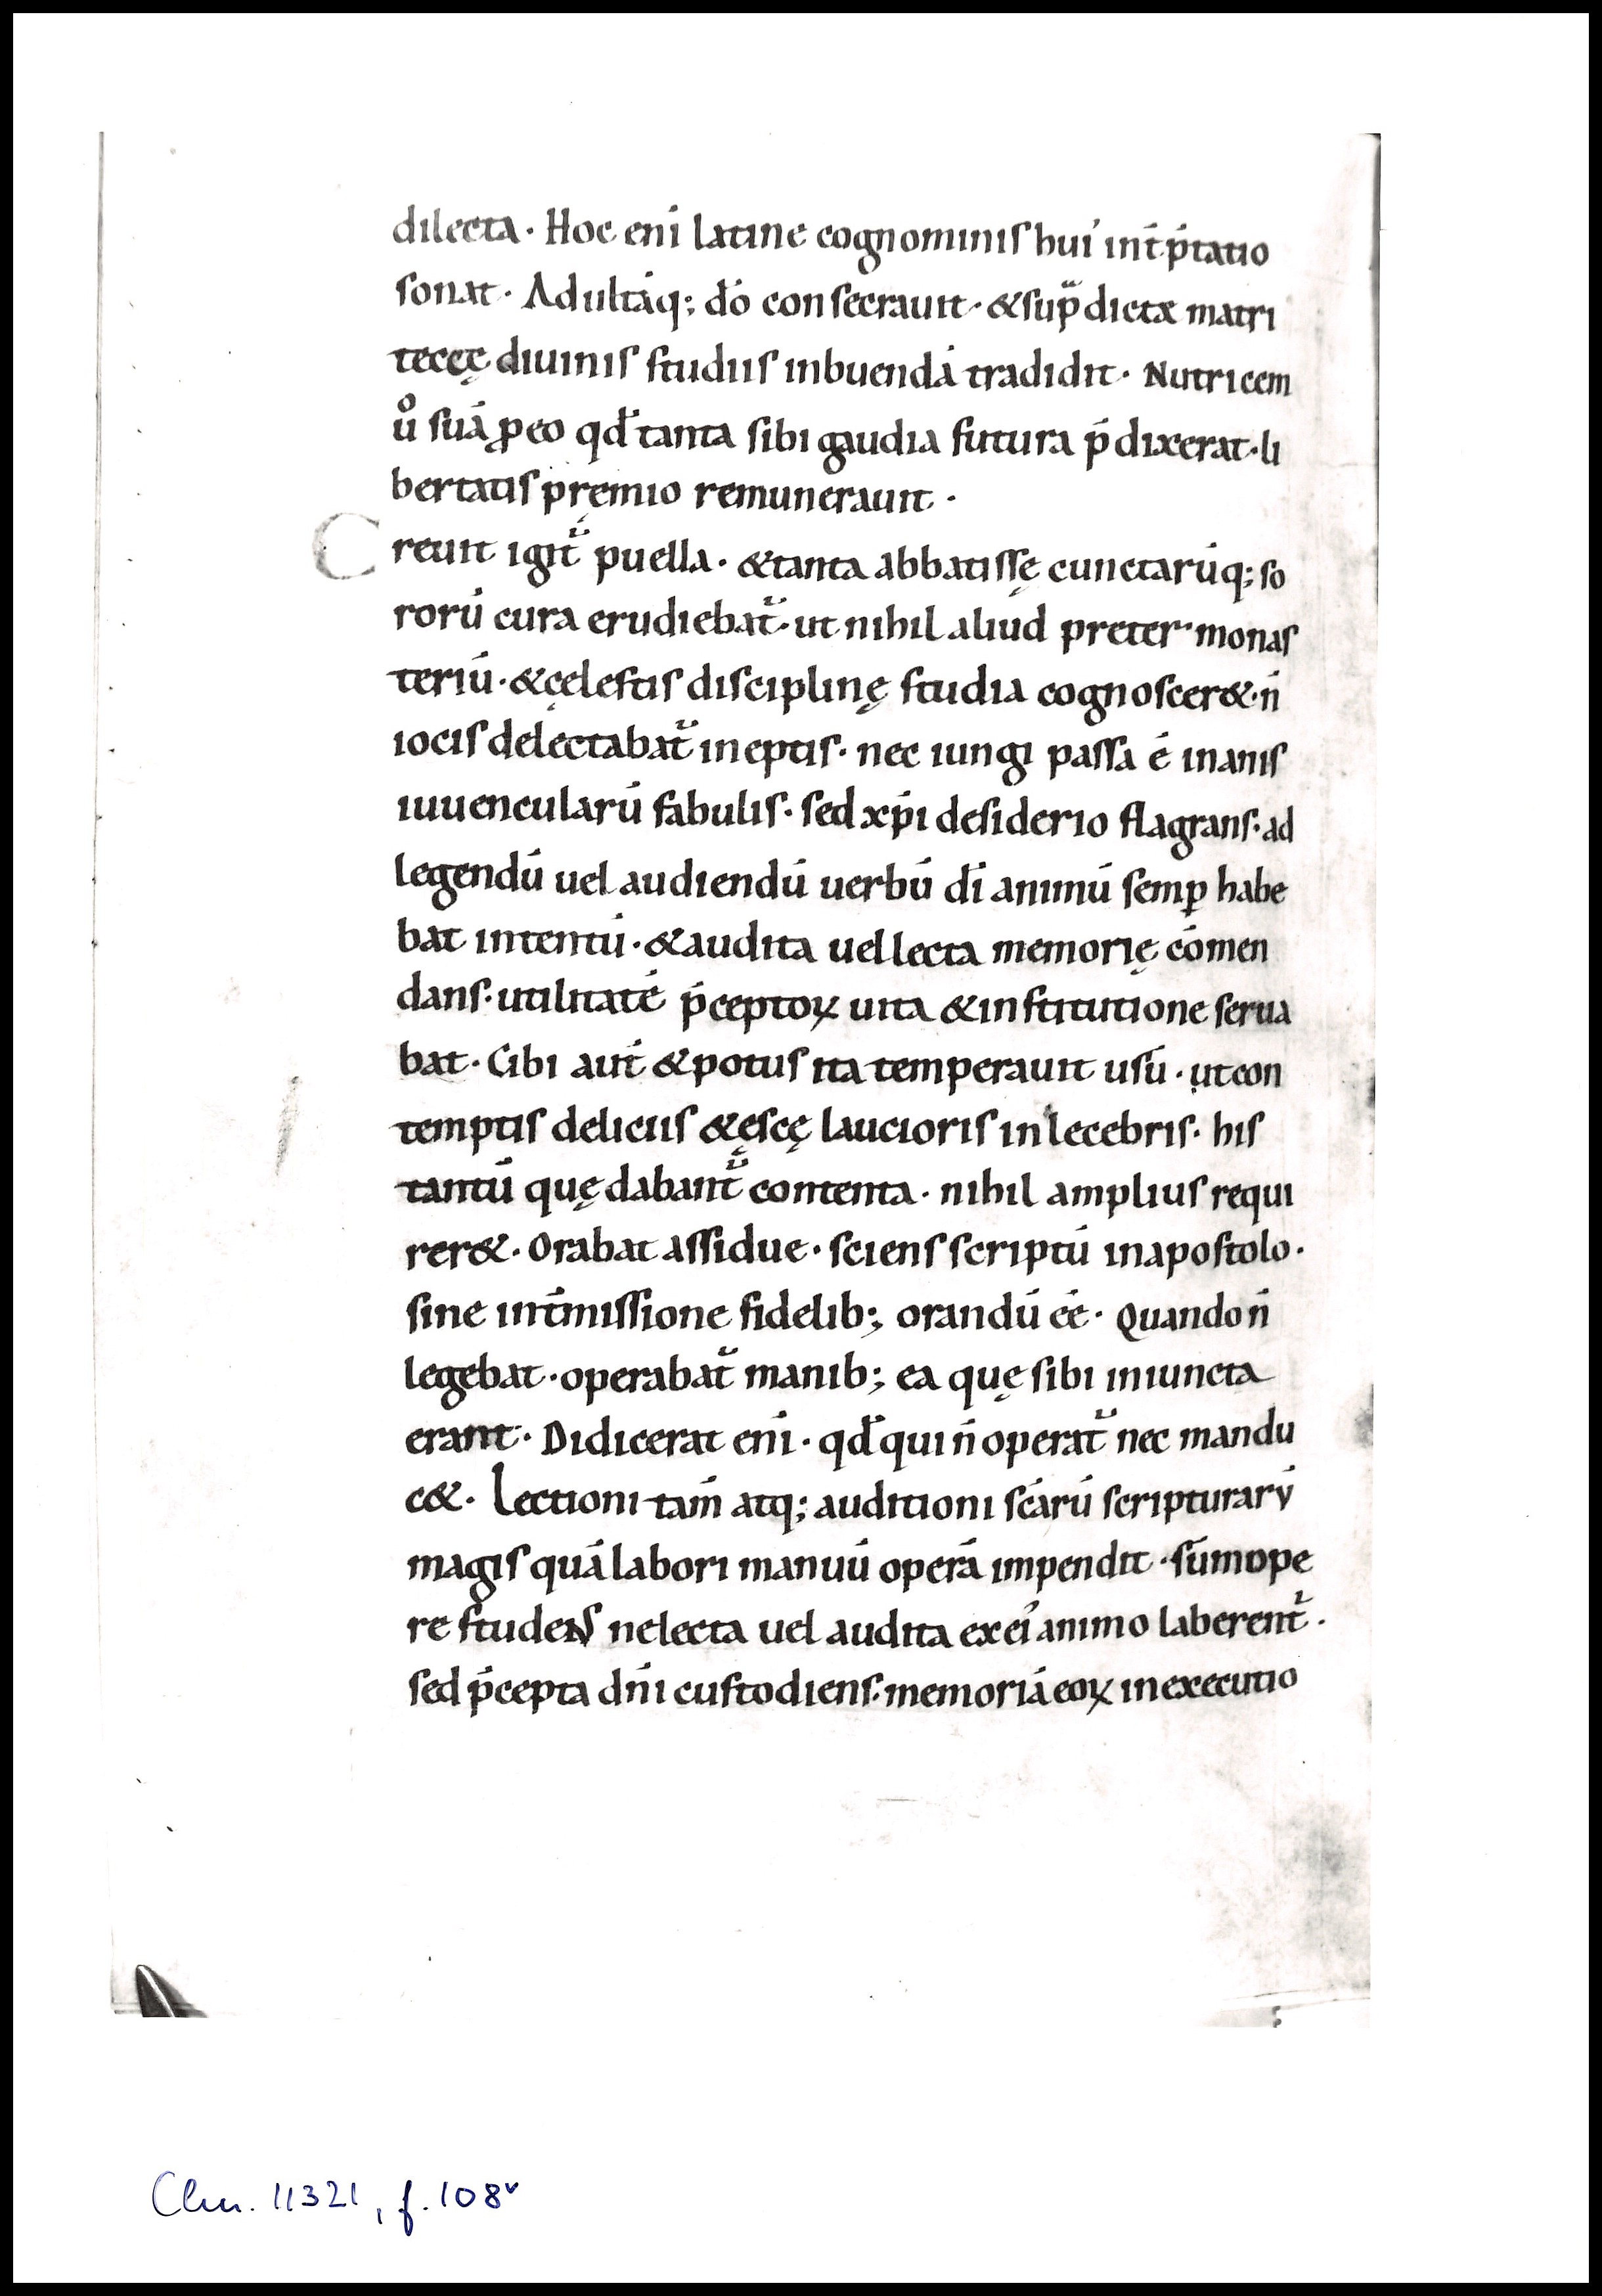 dilecta · Hoc enī latine cognominis hui' int̄p̄tatio
sonat · Adultāq; dō consecrauit · & sup̄dictæ matri
teceę diuinis studiis inbuendā tradidit · Nutricem
ů suā ꝓ eo qđ tanta sibi gaudia futura p̄dixerat · li
bertatis pręmio remunerauit ·
Creuit igit᷑ puella · & tanta abbatissę cunctarūq; so
rorū cura erudiebat᷑ · ut nihil aliud preter monas
teriū · & cęlestis disciplinę studia cognoscer& · n̄
iocis delectabat᷑ ineptis · nec iungi passa ē inanis
iuuencularū fabulis · sed xp̄i desiderio flagrans · ad
legendū uel audiendū uerbū dī animū semꝑ habe
bat intentū · & audita uel lecta memorię cōmen
dans · utilitatē p̄ceptoꝝ uita & institutione serua
bat · Cibi aut̄ & potus ita temperauit usū · ut con
temptis deliciis & ęscę laucioris inlecebris · his
tantū quę dabant᷑ contenta · nihil amplius requi
rer& · Orabat assidue · sciens scriptū in apostolo ·
sine int̄missione fidelib; orandū ēē · Quando n̄
legebat · operabat᷑ manib; ea quę sibi iniuncta
erant · Didicerat enī · qđ qui n̄ operat᷑ nec mandu
c& · Lectioni tam̄ atq; auditioni scārū scripturarū
magis quā labori manuū operā impendit · sūmope
re studens ne lecta uel audita ex ei' animo laberent᷑ ·
sed p̄cepta dn̄i custodiens · memoriā eoꝝ in executio
Clm. 11321, f. 108ᵛ